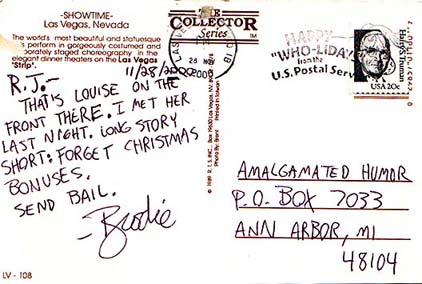 -SHOWTIME-
Las Vegas, Nevada
The world's most beautiful and statuesque
perform in gorgeously costumed and
borately staged choreography in the
elegant dinner theaters on the Las Vegas
"Strip".
THE
COLLECTOR
Series
LAS VEGAS
28 NOV
2000
HAPPY
"WHO-LIDAY
from the
U.S. Postal Serv
Harry S. Truman
USA 20c
11/28/2000
R.J.-
THAT'S LOUISE ON THE
FRONT THERE. I MET HER
LAST NIGHT. LONG STORY
SHORT: FORGET CHRISTMAS
BONUSES.
SEND BAIL.
-Brodie
Printed in Taiwan
AMALGAMATED HUMOR
P.O. BOX 7033
ANN ARBOR, MI
48104
LV - 108